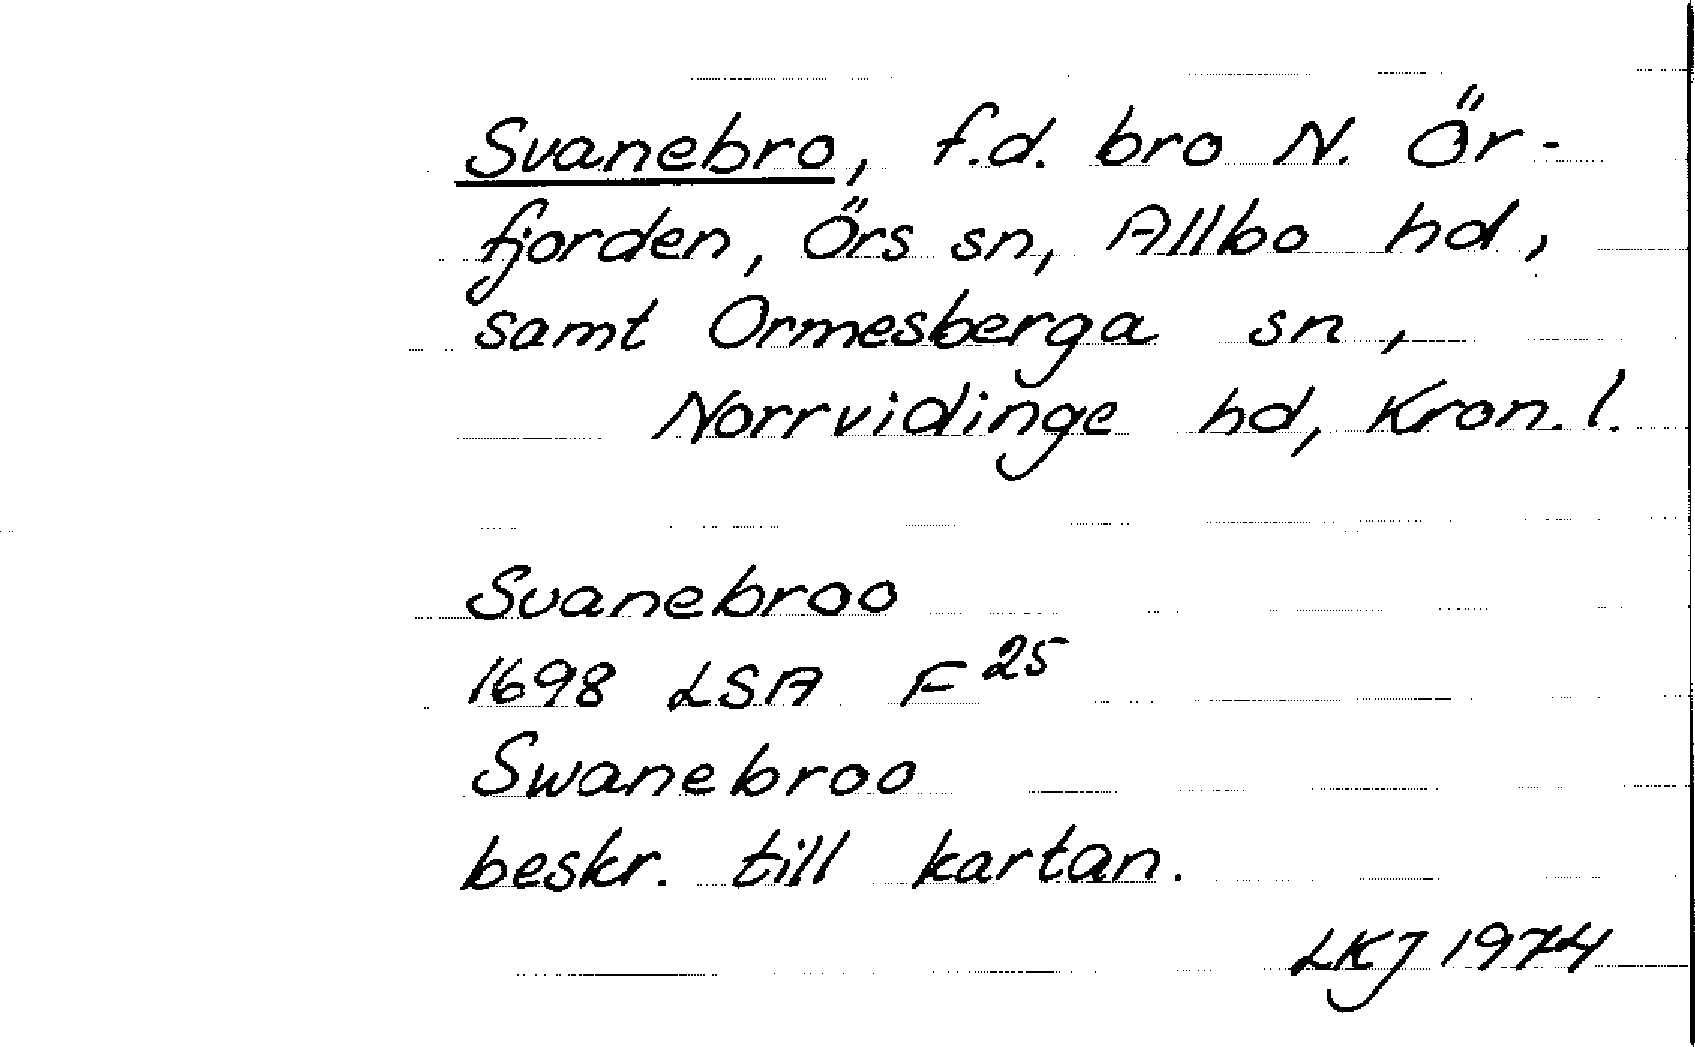 Svanebro, f.d. bro N. Ör-
fjorden, Örs sn, Allbo hd,
samt Ormesberga sn,
Norrvidinge hd, Kron. l.
Svanebroo
1698 LSA F 25
Swanebroo
beskr. till kartan.
LKJ 1974